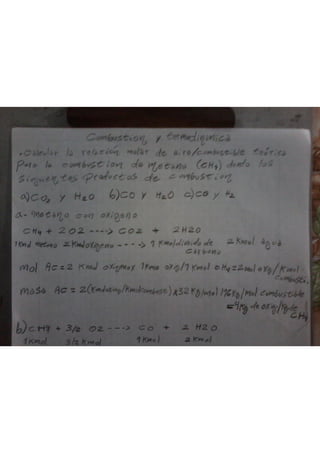 Combustion y termodinamica
• Calcular la relación molar de aire/combustible teórica
para la combustion de metano (CH4) dando los
siguientes productos de combustion
a) CO2 y H2O b) CO y H2O c) CO y H2
a- metano con oxigeno
CH4 + 2O2 ----> CO2 + 2H2O
1Kmol metano 2Kmol oxigeno ----> 1 Kmol dioxido de carbono 2 Kmol agua
mol AC = 2 Kmol oxig/1 Kmol CH4 = 2 mol oxg/Kmol combusti.
masa AC = 2(Kmol oxig/Kmol combust) x 32 Kg/mol 1 16 Kg/mol combustible
= 4 Kg de oxig/Kg de CH4
b) CH4 + 3/2 O2 ---> CO + 2 H2O
1Kmol 3/2 Kmol 1Kmol 2Kmol